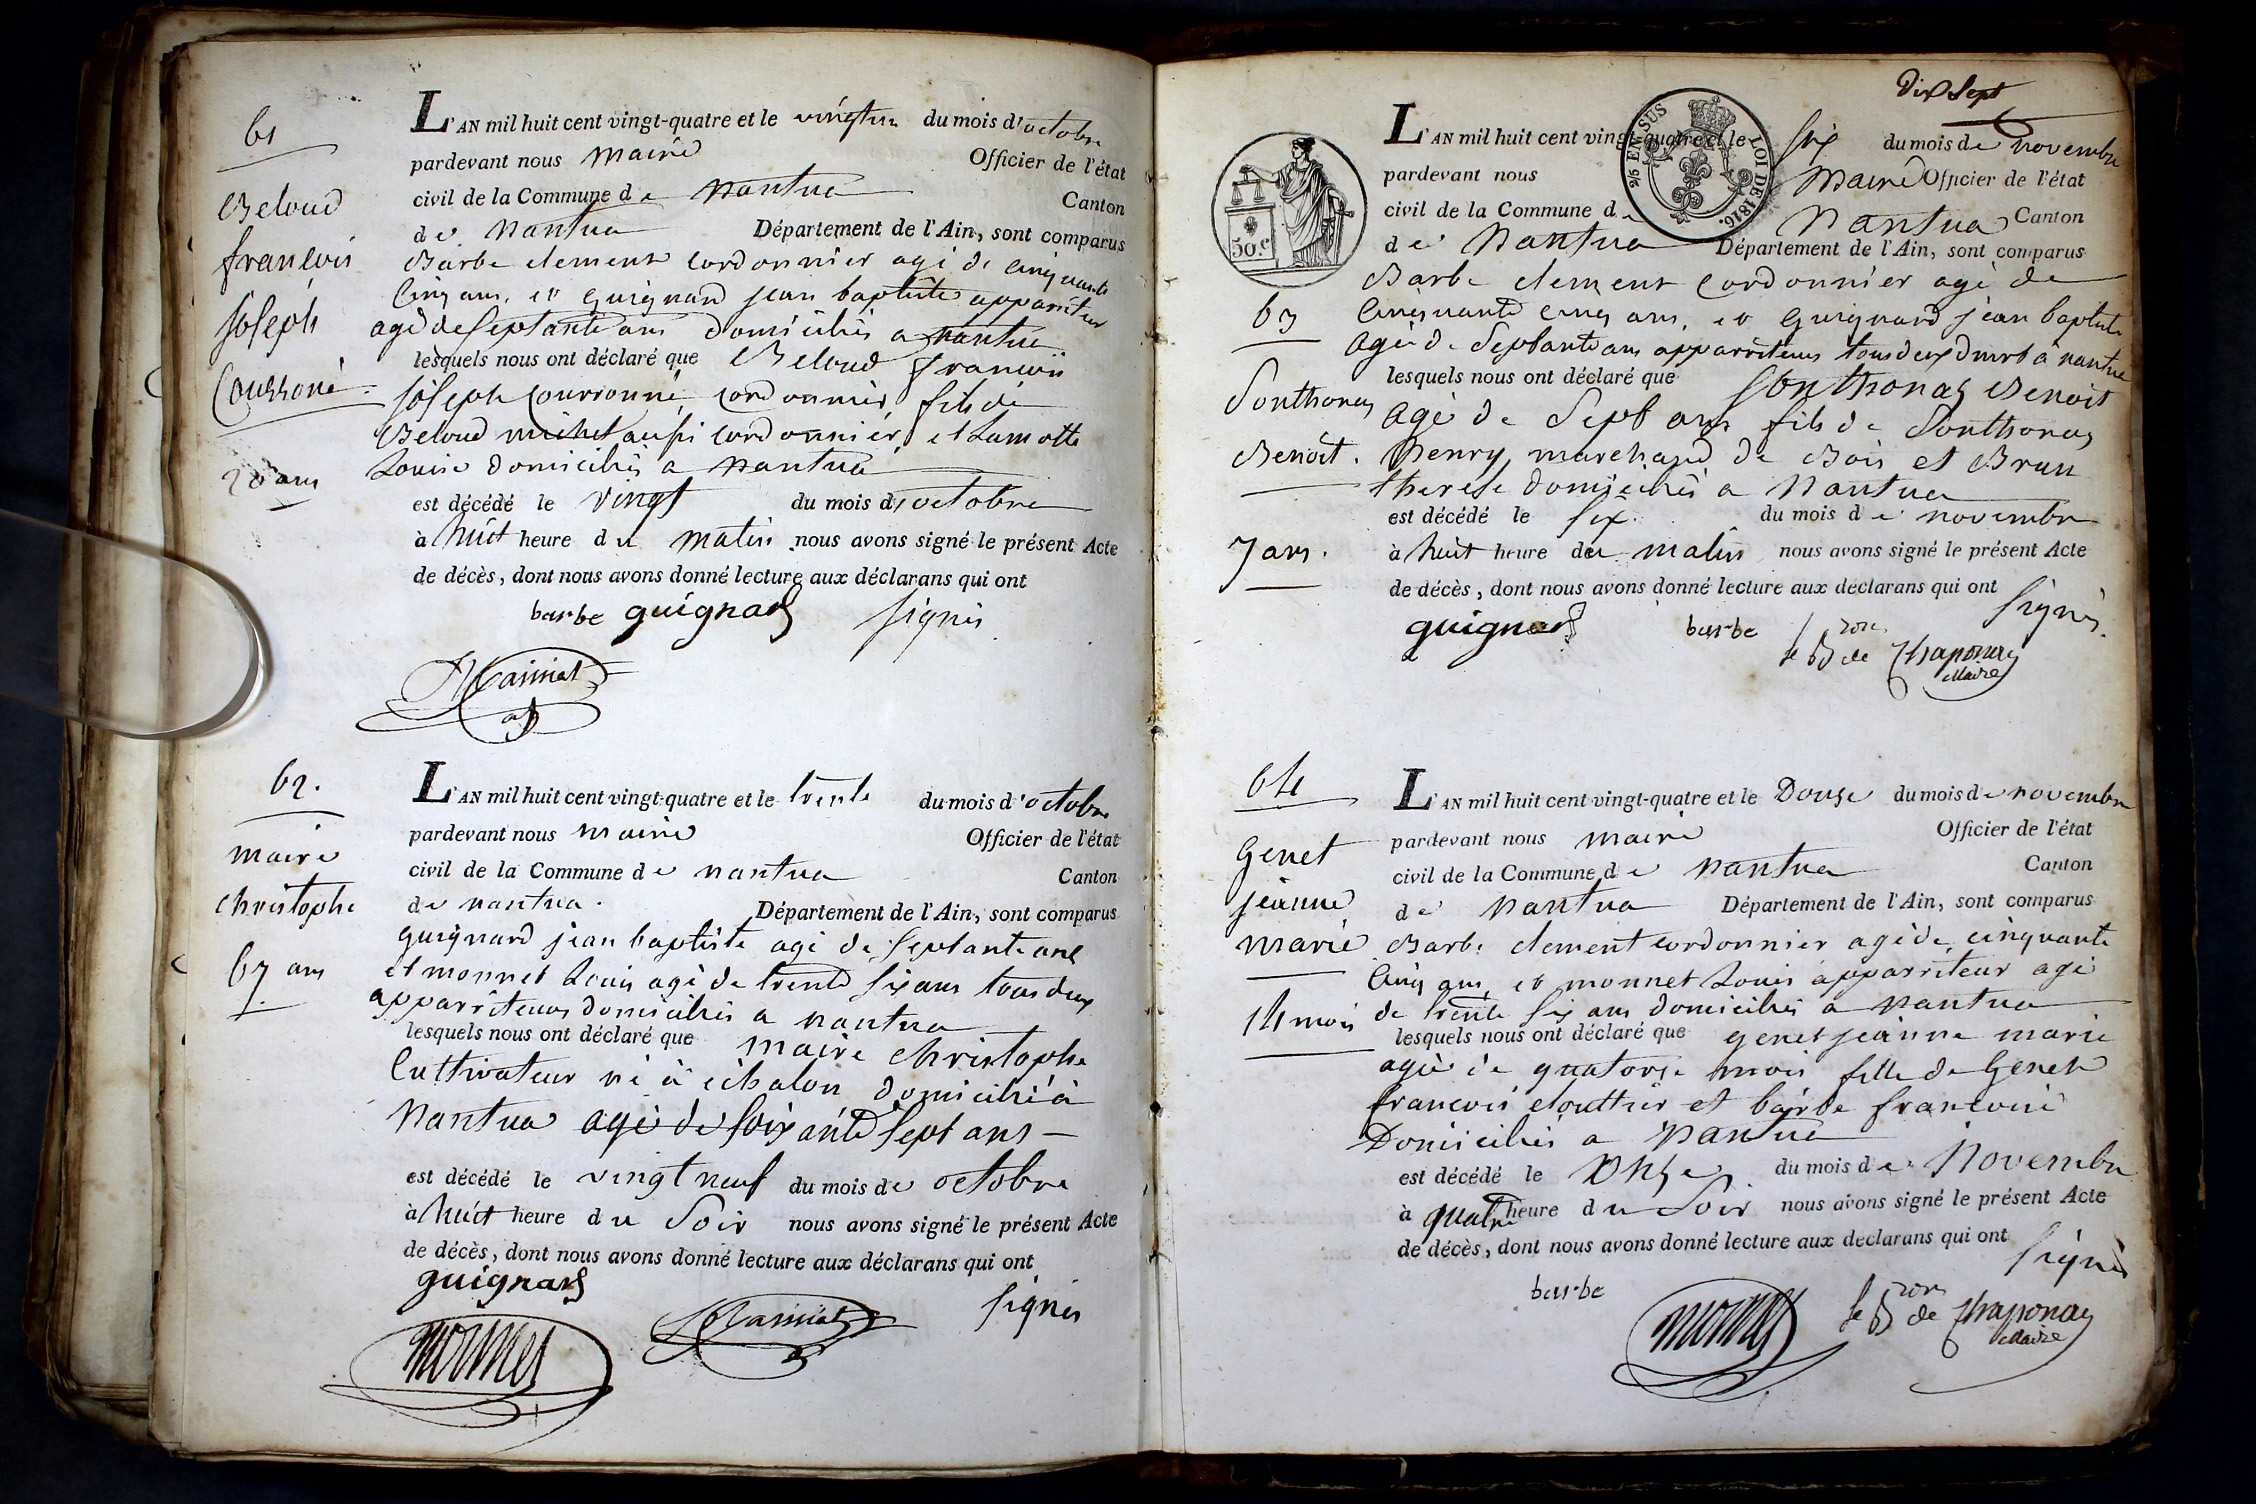 61
Beloud
françois
joseph
Couronné
20 ans
L'AN mil huit cent vingt-quatre et le vingt un du mois d'octobre
pardevant nous maire Officier de l'état
civil de la Commune de nantua Canton
de nantua Département de l'Ain, sont comparus
Barbe clement cordonnier agé de cinquante
cinq ans, et guignard jean baptiste apparriteur
agé de septante ans domiciliés a nantua
lesquels nous ont déclaré que Beloud françois
joseph Couronné cordonnier fils de
Beloud michel aussi cordonnier et Lamotte
Louise domiciliés a nantua
est décédé le vingt du mois d'octobre
à huit heure du matin nous avons signé le présent Acte
de décès, dont nous avons donné lecture aux déclarans qui ont
barbe guignard signés
62.
maire
christophe
67 ans
L'AN mil huit cent vingt-quatre et le trente du mois d'octobre
pardevant nous maire Officier de l'état
civil de la Commune de nantua Canton
de nantua. Département de l'Ain, sont comparus
guignard jean baptiste agé de septante ans
et monnet Louis agé de trente six ans tous deux
apparriteurs domiciliés a nantua
lesquels nous ont déclaré que maire christophe
Cultivateur né à échalon domicilié à
Nantua agé de soixante sept ans
est décédé le vingt neuf du mois de octobre
à huit heure du soir nous avons signé le présent Acte
de décès, dont nous avons donné lecture aux déclarans qui ont
guignard signés
monnet
Dix Sept
2/5 EN SUS
LOI DE 1816.
50.c
63
Sonthonas
Benoit.
7 ans.
L'AN mil huit cent vingt-quatre et le six du mois de novembre
pardevant nous Maire Officier de l'état
civil de la Commune de Nantua Canton
de Nantua Département de l'Ain, sont comparus
Barbe clement cordonnier agé de
Cinquante cinq ans, et guignard jean baptiste
agé de septante ans apparriteur tous deux à nantua
lesquels nous ont déclaré que Sonthonas Benoit
agé de sept ans fils de Sonthonas
henry marchand de Bois et Brun
therese domiciliés a Nantua
est décédé le six. du mois de novembre
à huit heure du matin nous avons signé le présent Acte
de décès, dont nous avons donné lecture aux déclarans qui ont
signés.
guignard barbe le Bon de Chaponay
Maire
64
Genet
jeanne
marie
14 mois
L'AN mil huit cent vingt-quatre et le Douze du mois de novembre
pardevant nous maire Officier de l'état
civil de la Commune de nantua Canton
de Nantua Département de l'Ain, sont comparus
Barbe clement cordonnier agé de cinquante
Cinq ans, et monnet Louis apparriteur agé
de trente six ans domiciliés a nantua
lesquels nous ont déclaré que genet jeanne marie
agée de quatorze mois fille de Genet
françois cloutier et barbe françoise
Domiciliés a Nantua
est décédé le Onze du mois de Novembre
à quatre heure du soir nous avons signé le présent Acte
de décès, dont nous avons donné lecture aux déclarans qui ont
signés
barbe monnet le Bon de Chaponay
Maire